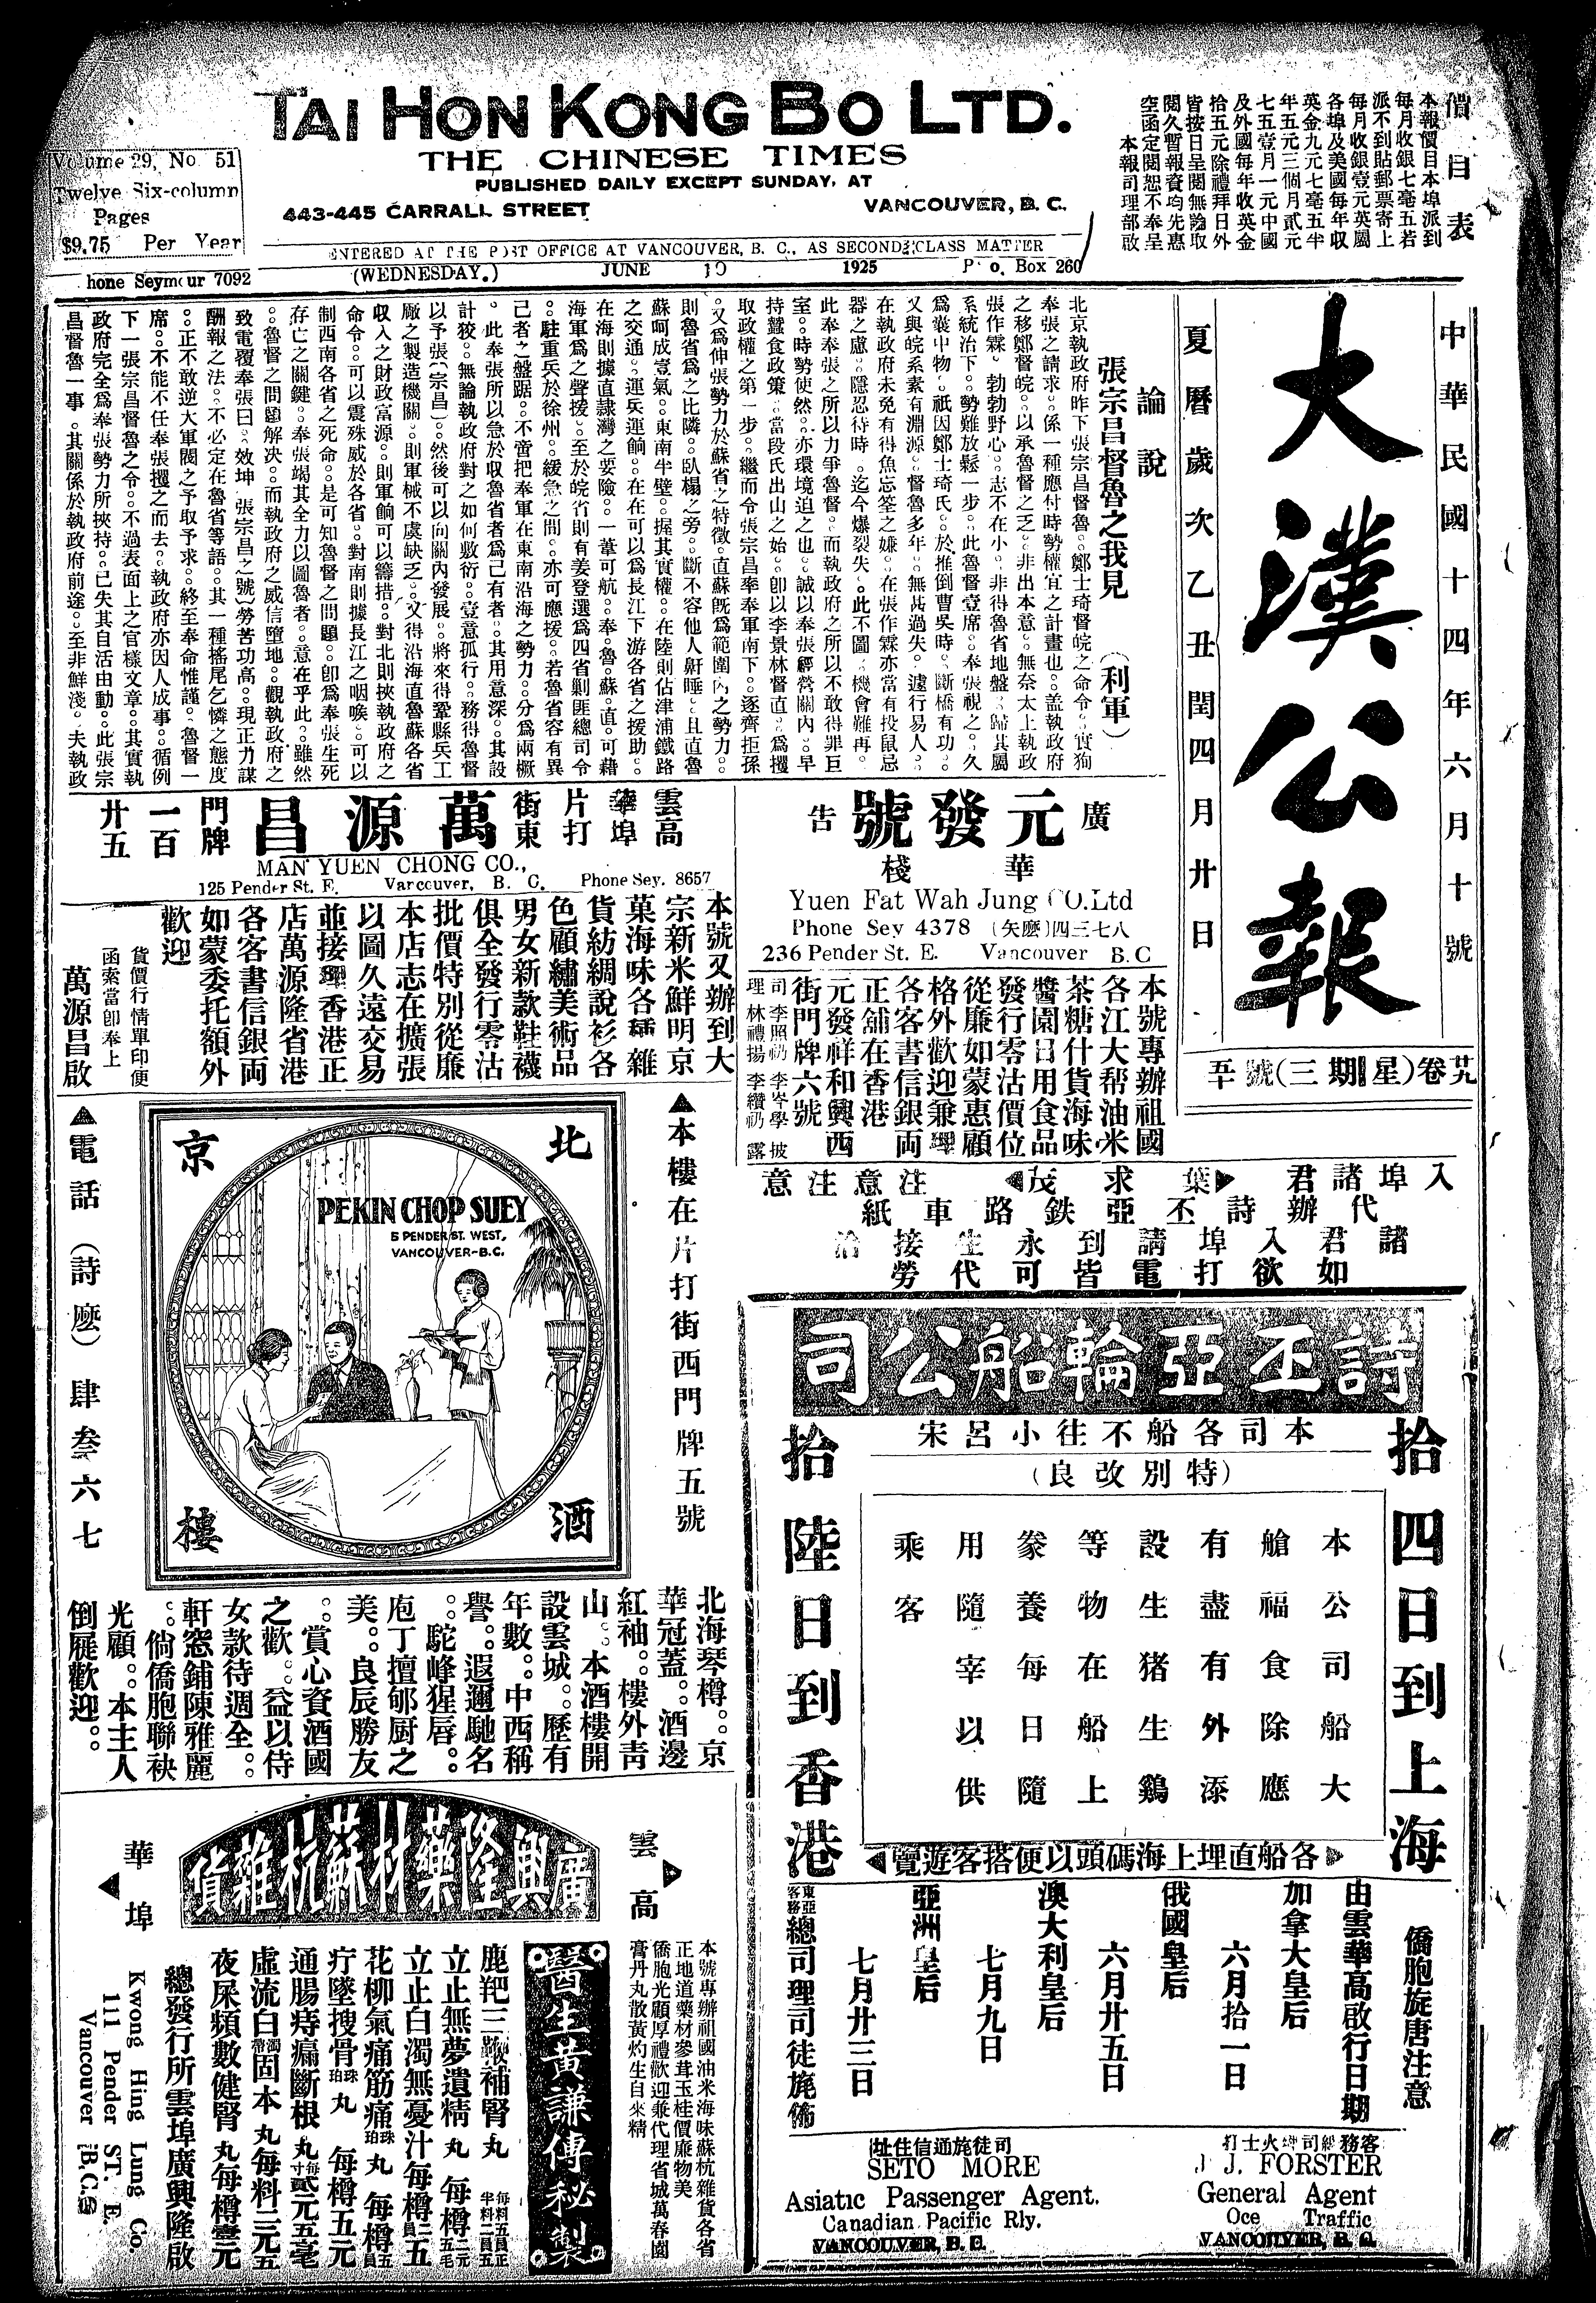 TAI HON KONG BO LTD.
THE CHINESE TIMES
PUBLISHED DAILY EXCEPT SUNDAY, AT
443-445 CARRALL STREET VANCOUVER, B. C.
ENTERED AT THE POST OFFICE AT VANCOUVER, B. C., AS SECOND CLASS MATTER
Volume 29, No. 51
Twelve Six-column
Pages
$9.75 Per Year
hone Seymour 7092
(WEDNESDAY.) JUNE 10 1925 P. o. Box 260
價目表
本報價目本埠派到
每月收銀七毫五若
派不到貼郵票寄上
每月收銀壹元英屬
各埠及美國每年收
英金九元七毫五半
年五元三個月貳元
七五壹月一元中國
及外國每年收英金
拾五元除禮拜日外
皆按日呈閱無論取
閱久暫報資均先惠
空函定閱恕不奉呈
本報司理部啟
中華民國十四年六月十號
大漢公報
夏曆歲次乙丑閏四月廿日
廿九卷(星期三)號五十
論說
張宗昌督魯之我見 (利軍)
北京執政府昨下張宗昌督魯。鄭士琦督皖之命令。實狥
奉張之請求。係一種應付時勢權宜之計畫也。蓋執政府
之移鄭督皖。以承魯督之乏。非出本意。無奈太上執政
張作霖。勃勃野心。志不在小。非得魯省地盤。歸其屬
系統治下。勢難放鬆一步。此魯督壹席。奉張視之。久
爲囊中物。祇因鄭士琦氏。於推倒曹吳時。斷橋有功。
又與皖系素有淵源。督魯多年。無甚過失。遽行易人。
在執政府未免有得魚忘筌之嫌。在張作霖亦當有投鼠忌
器之慮。隱忍待時。迄今爆裂失。此不圖。機會難再。
此奉奉張之所以力爭魯督。而執政府之所以不敢得罪巨
室。時勢使然。亦環境迫之也。誠以奉張經營關內。早
持蠶食政策。當段氏出山之始。卽以李景林督直。爲攫
取政權之第一步。繼而令張宗昌率奉軍南下。逐齊拒孫
。又爲伸張勢力於蘇省之特徵。直蘇旣爲範圍內之勢力。
則魯省爲之比隣。臥榻之旁。斷不容他人鼾睡。且直魯
蘇呵成壹氣。東南半壁。握其實權。在陸則佔津浦鐵路
之交通。運兵運餉。在在可以爲長江下游各省之援助。
在海則據直隷灣之要險。一葦可航。奉。魯。蘇。直。可藉
海軍爲之聲援。至於皖省則有姜登選爲四省剿匪總司令
。駐重兵於徐州。緩急之間。亦可應援。若魯省容有異
己者之盤踞。不啻把奉軍在東南沿海之勢力。分爲兩橛
。此奉張所以急於收魯省者爲己有者。其用意深。其設
計狡。無論執政府對之如何敷衍。壹意孤行。務得魯督
以予張(宗昌)。然後可以向關內發展。將來得鞏縣兵工
廠之製造機關。則軍械不虞缺乏。又得沿海直魯蘇各省
収入之財政富源。則軍餉可以籌措。對北則挾執政府之
命令。可以震殊威於各省。對南則據長江之咽喉。可以
制西南各省之死命。是可知魯督之問題。卽爲奉張生死
存亡之關鍵。奉張竭其全力以圖魯者。意在乎此。雖然
。魯督之問題解決。而執政府之威信墮地。觀執政府之
致電覆奉張曰。效坤 張宗昌之號)勞苦功高。現正力謀
酬報之法。不必定在魯省等語。其一種搖尾乞憐之態度
。正不敢逆大軍閥之予取予求。終至奉命惟謹。魯督一
席。不能不任奉張攫之而去。執政府亦因人成事。循例
下一張宗昌督魯之令。不過表面上之官樣文章。其實執
政府完全爲奉張勢力所挾持。已失其自活由動。此張宗
昌督魯一事。其關係於執政府前途。至非鮮淺。夫執政
廣 元發號 告
華棧
Yuen Fat Wah Jung CO.Ltd
Phone Sey 4378 (矢麽)四三七八
236 Pender St. E. Vancouver B.C
本號專辦祖國
各江大帮油米
茶糖什貨海味
醬園日用食品
發行零沽價位
從廉如蒙惠顧
格外歡迎兼理
各客書信銀両
正舖在香港
元發祥和興西
街門牌六號
司理 李照礽 李岑學 林禮揚 李纘礽 披露
雲高華埠 片打街東 萬源昌 門牌一百廿五
MAN YUEN CHONG CO.,
125 Pender St. E. Vancouver, B. C. Phone Sey. 8657
本號又辦到大
宗新米鮮明京
菓海味各種雜
貨紡綢說衫各
色顧繡美術品
男女新款鞋襪
俱全發行零沽
批價特別從廉
本店志在擴張
以圖久遠交易
並接理香港正
店萬源隆省港
各客書信銀両
如蒙委托額外
歡迎
貨價行情單印便
函索當卽奉上
萬源昌啟
入埠諸君 葉求茂 注意注意
代辦詩丕亞鉄路車紙
諸君入埠請到永生接洽
如欲打電皆可代勞
▲本樓在片打街西門牌五號
北京酒樓
PEKIN CHOP SUEY
5 PENDER ST. WEST,
VANCOUVER-B.C.
▲電話(詩麽)肆叁六七
北海琴樽。京
華冠蓋。酒邊
紅袖。樓外靑
山。本酒樓開
設雲城。歷有
年數。中西稱
譽。遐邇馳名
。駝峰猩唇。
庖丁擅郇厨之
美。良辰勝友
。賞心資酒國
之歡。益以侍
女款待週全。
軒窻鋪陳雅麗
。倘僑胞聯袂
光顧。本主人
倒屣歡迎。
詩丕亞輪船公司
本司各船不往小呂宋
(特別改良)
拾四日到上海
本公司船大
艙福食除應
有盡有外添
設生猪生鷄
等物在船上
豢養每日隨
用隨宰以供
乘客
拾陸日到香港
各船直埋上海碼頭以便搭客遊覽
僑胞旋唐注意
由雲高華啟行日期
加拿大皇后
六月拾一日
俄國皇后
六月廿五日
澳大利皇后
七月九日
亞洲皇后
七月廿三日
東亞客務總司理司徒旄佈
客務總司理火士打
J. J. FORSTER
General Agent
Oce Traffic
VANCOUVER, B. C.
司徒旄通信住址
SETO MORE
Asiatic Passenger Agent.
Canadian Pacific Rly.
VANCOUVER, B. C.
雲高
華埠
廣興隆藥材蘇杭雜貨
本號專辦祖國油米海味蘇杭雜貨各省
正地道藥材參茸玉桂價廉物美
僑胞光顧厚禮歡迎兼代理省城萬春園
膏丹丸散黃灼生白來精
醫生黃謙傳秘製
鹿羓三鞭補腎丸 每料五員正 半料二員五
立止無夢遺精丸 每樽二元五毛
立止白濁無憂汁每樽二員五
花柳氣痛筋痛珠珀丸 每樽五員
疔墜搜骨珠珀丸 每樽五元
通腸痔瘺斷根丸每寸貳元五毫
虛流白濁帶固本丸每料三元五
夜尿頻數健腎丸每樽壹元
總發行所雲埠廣興隆啟
Kwong Hing Lung Co.
111 Pender ST. E.
Vancouver B.C.